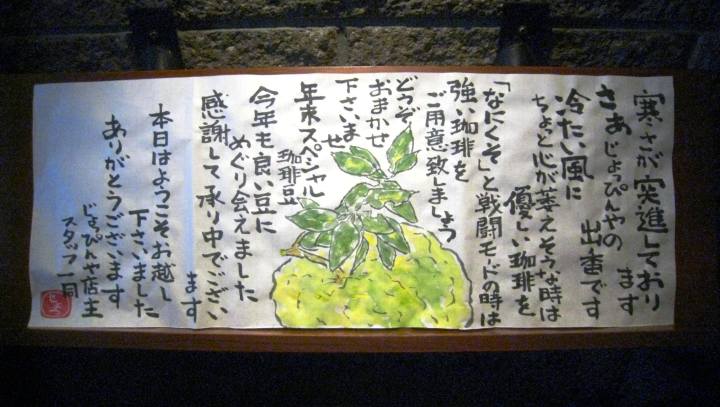 寒さが突進しており
ます
さあじょっぴんやの
出番です
冷たい風に
ちょっと心が萎えそうな時は
優しい珈琲を
「なにくそ」と戦闘モードの時は
強い珈琲を
ご用意致しましょう
どうぞ
おまかせ
下さいませ
年末スペシャル
珈琲豆
今年も良い豆に
めぐり会えました
感謝して承り中でござい
ます
本日はようこそお越し
下さいました
ありがとうございます
じょっぴんや店主
スタッフ一同